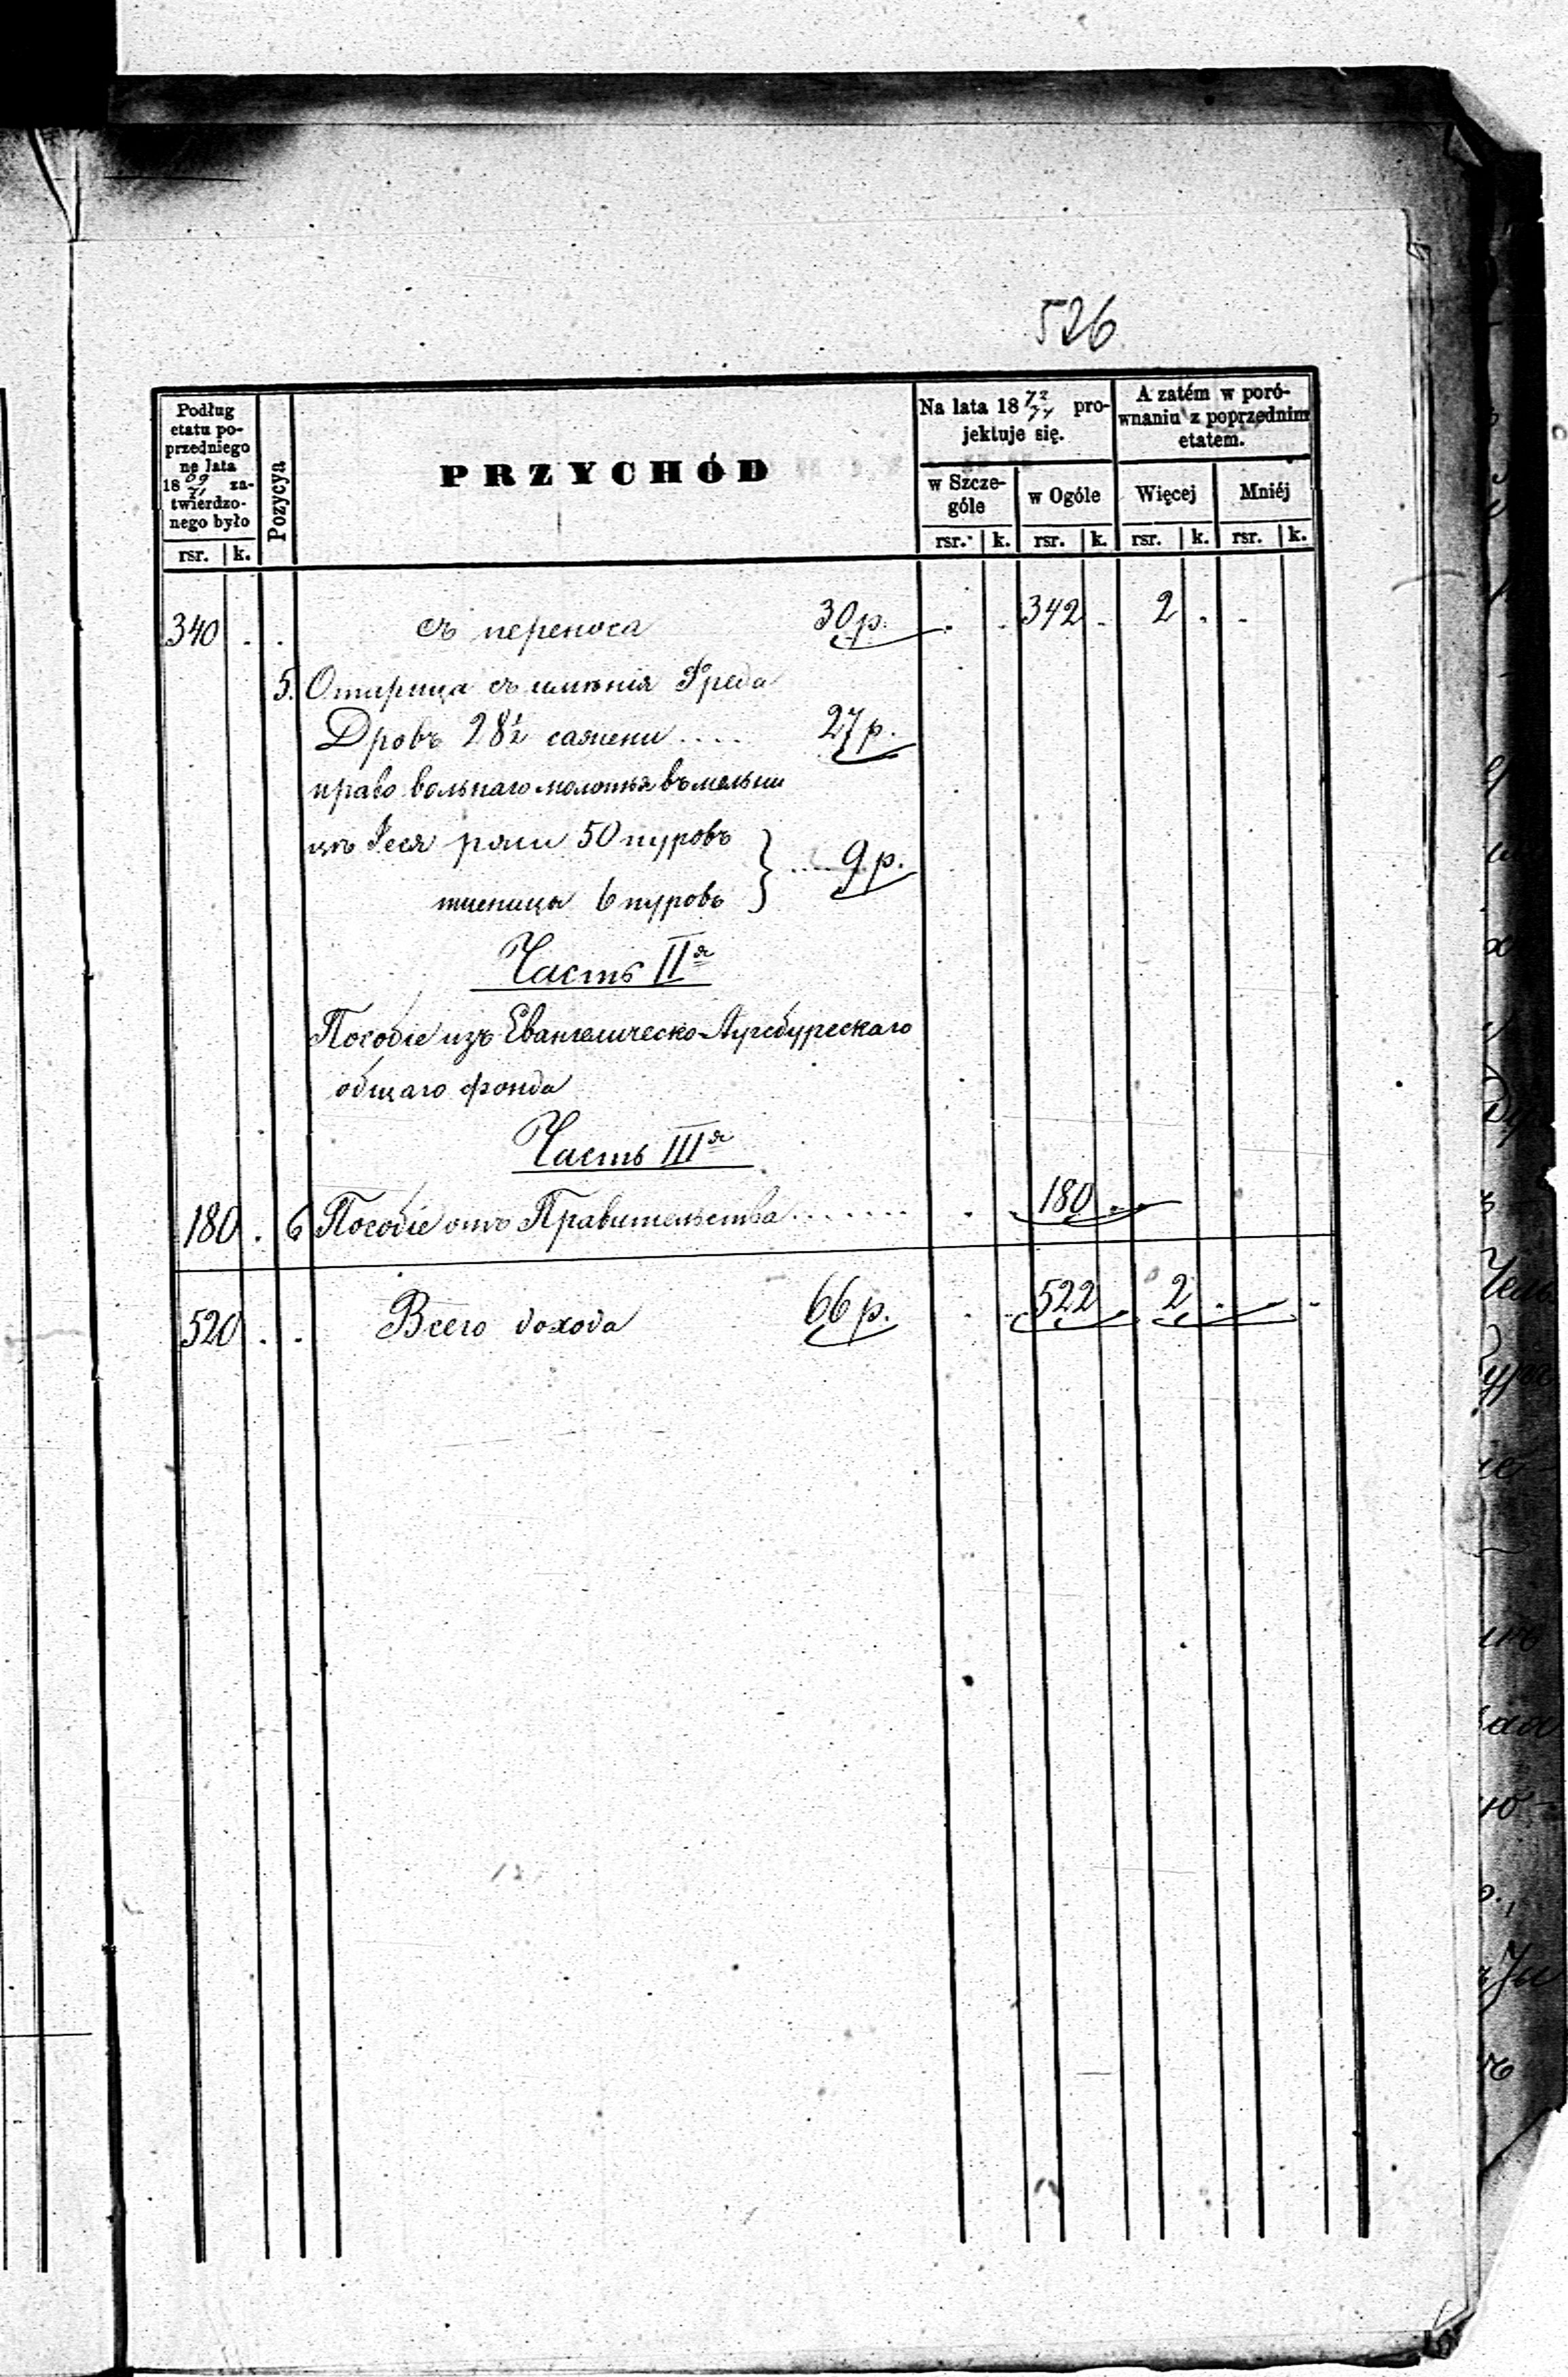 526
Podług etatu poprzedniego na lata 18 69/71 zatwierdzonego było
rsr. k.
Pozycya
PRZYCHÓD
Na lata 18 72/74 projektuje się.
w Szczególe
rsr. k.
w Ogóle
rsr. k.
A zatém w porównaniu z poprzednim etatem.
Więcej
rsr. k.
Mniéj
rsr. k.
340 . . съ переноса 30 р. . . 342 . 2 . .
5. съ имѣнія Фреда
Дровъ 28½ сажени .... 27 р.
право вольнаго молотья въ мельни
цѣ ржи 50 пуровъ
пшеницы 6 пуровъ } .... 9 р.
Часть II я
Пособіе изъ Евангелическо-Аугсбургскаго
общаго фонда
Часть III я
180 . 6 Пособіе отъ Правительства ....... . . 180 . .
520 . . Всего дохода 66 р. . . 522 . 2 . . .